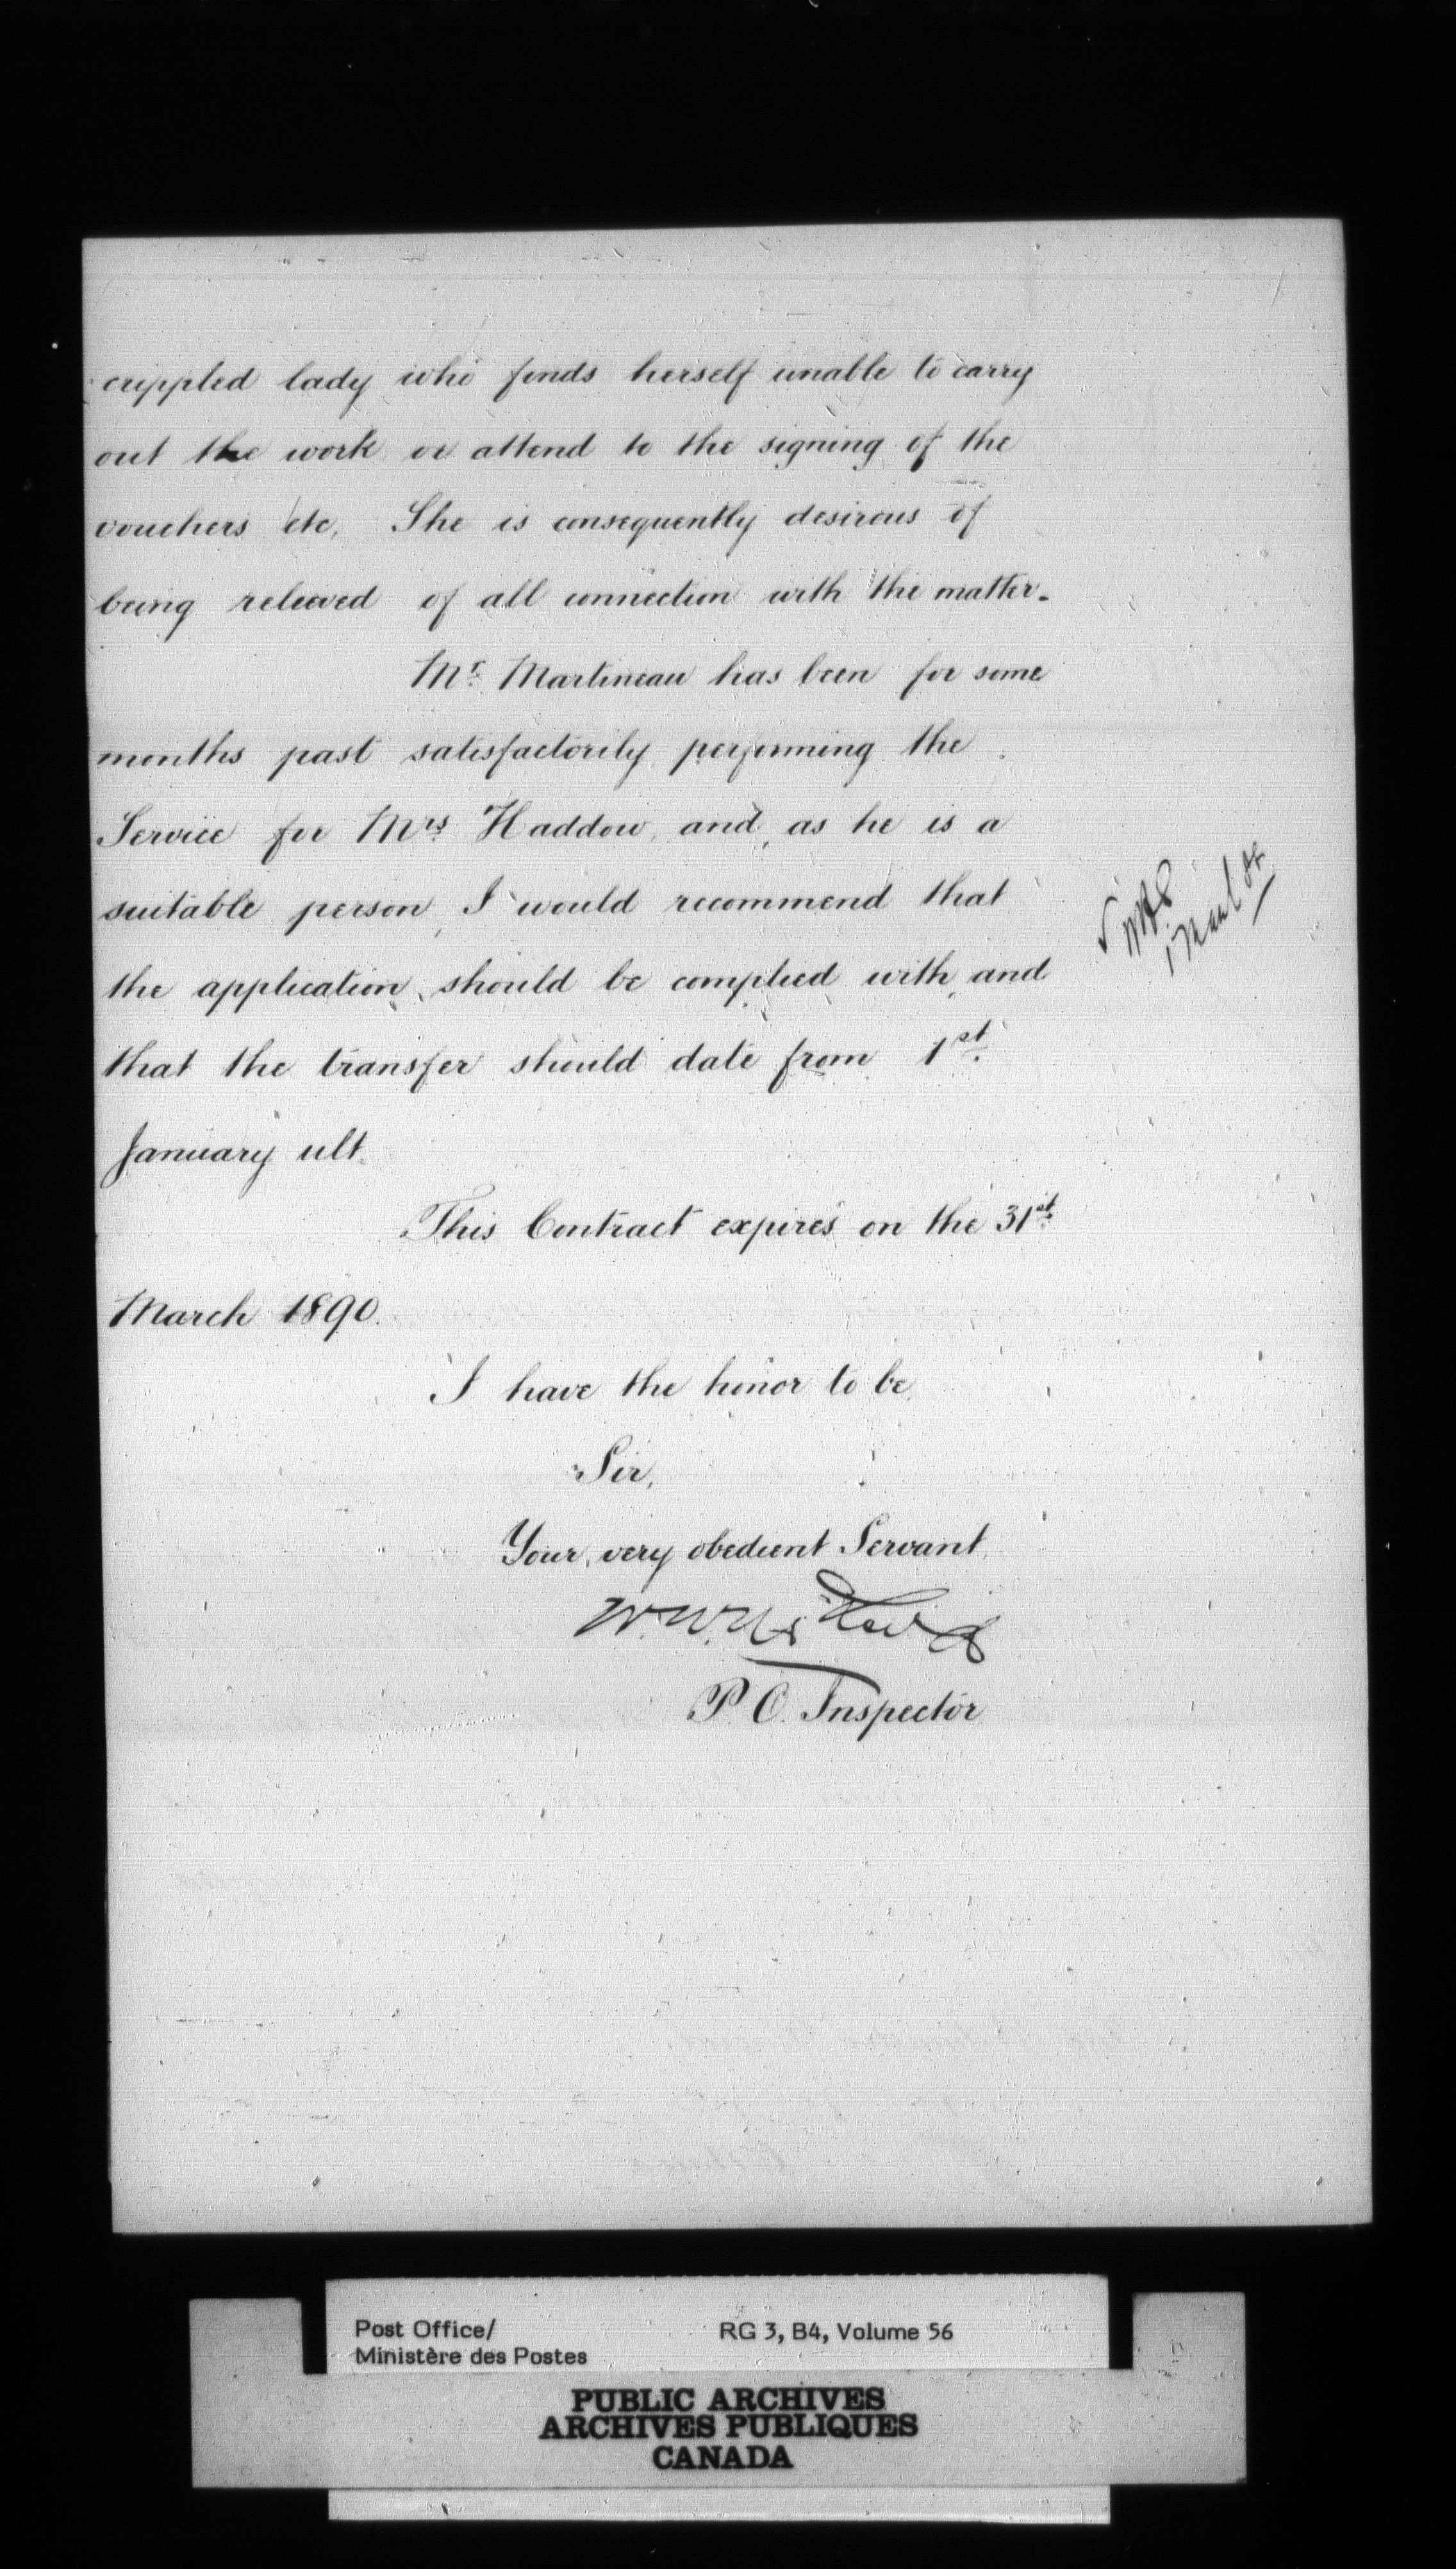 crippled lady who finds herself unable to carry
out the work or attend to the signing of the
vouchers etc, She is consequently desirous of
being relieved of all connection with the matter.
Mr. Martineau has been for some
months past satisfactorily performing the
Service for Mrs. Haddow, and, as he is a
suitable person, I would recommend that
the application, should be complied with, and
that the transfer should date from 1st.
January ult.
This Contract expires on the 31st.
March 1890.
I have the honor to be,
Sir,
Your, very obedient Servant,
P. O. Inspector
Post Office/ RG 3, B4, Volume 56
Ministère des Postes
PUBLIC ARCHIVES
ARCHIVES PUBLIQUES
CANADA